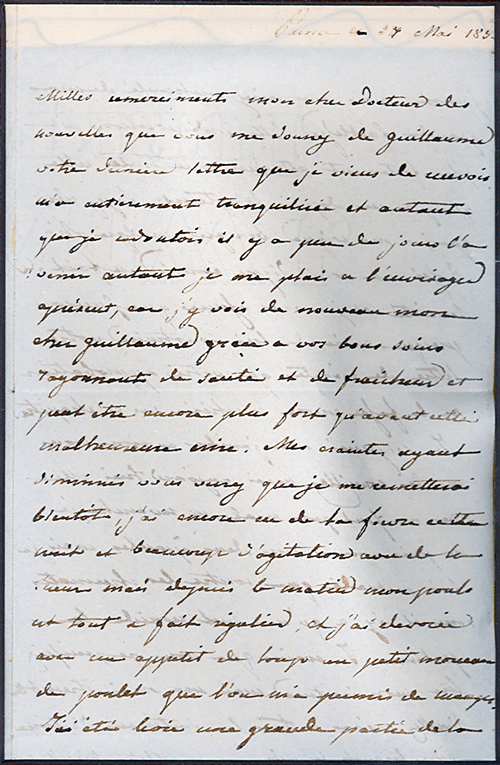 27 Mai 183
Milles remerciments mon cher Docteur des
nouvelles que vous me donnez de Guillaume
votre derniere lettre que je viens de recevoir
m'a entierement tranquilisée et autant
que je redoutois il y a peu de jours l'a
venir autant je me plais a l'envisager
apresent, car j'y vois de nouveau mon
cher Guillaume grace a vos bons soins
rayonnant de santé et de fraicheur et
peut être encore plus fort qu'avant cette
malheureuse crise. Mes craintes ayant
diminués vous verrez que je me remettrai
bientôt, j'ai encore eu de la fievre cette
nuit et beaucoup d'agitation avec de la
sueur mais depuis le matin mon pouls
est tout a fait régulier, et j'ai devorée
avec un appetit de loup un petit morceau
de poulet que l'on m'a permis de manger.
J'ai été hier une grande partie de la